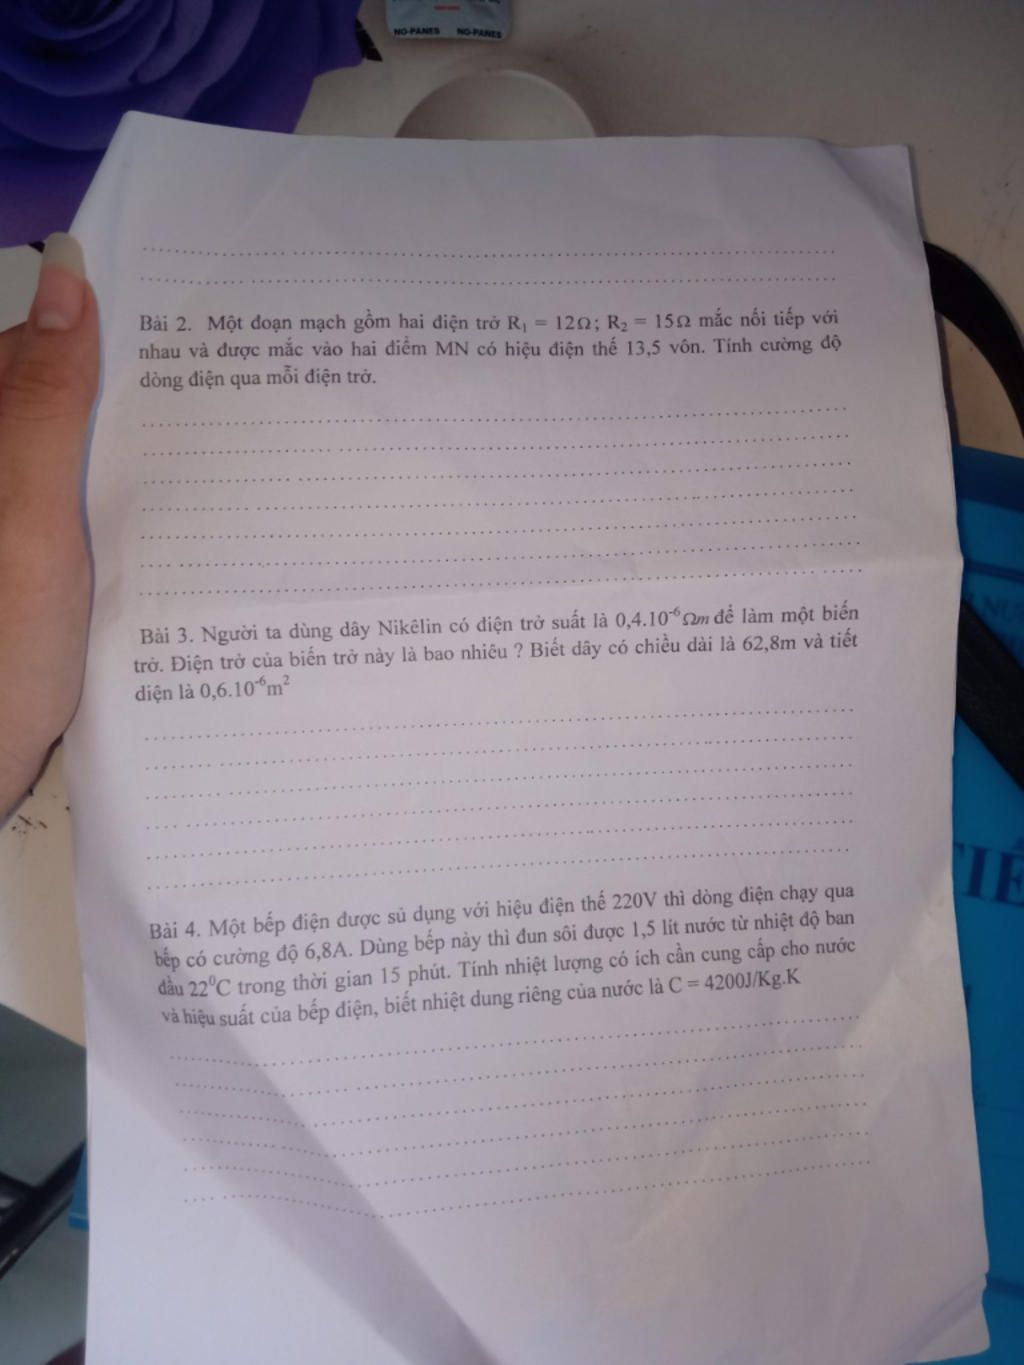 NO-PANES NO-PANES
Bài 2. Một đoạn mạch gồm hai điện trở R₁ = 12Ω; R₂ = 15Ω mắc nối tiếp với
nhau và được mắc vào hai điểm MN có hiệu điện thế 13,5 vôn. Tính cường độ
dòng điện qua mỗi điện trở.
Bài 3. Người ta dùng dây Nikêlin có điện trở suất là 0,4.10⁻⁶Ωm để làm một biến
trở. Điện trở của biến trở này là bao nhiêu ? Biết dây có chiều dài là 62,8m và tiết
diện là 0,6.10⁻⁶m²
Bài 4. Một bếp điện được sủ dụng với hiệu điện thế 220V thì dòng điện chạy qua
bếp có cường độ 6,8A. Dùng bếp này thì đun sôi được 1,5 lít nước từ nhiệt độ ban
đầu 22⁰C trong thời gian 15 phút. Tính nhiệt lượng có ích cần cung cấp cho nước
và hiệu suất của bếp điện, biết nhiệt dung riêng của nước là C = 4200J/Kg.K